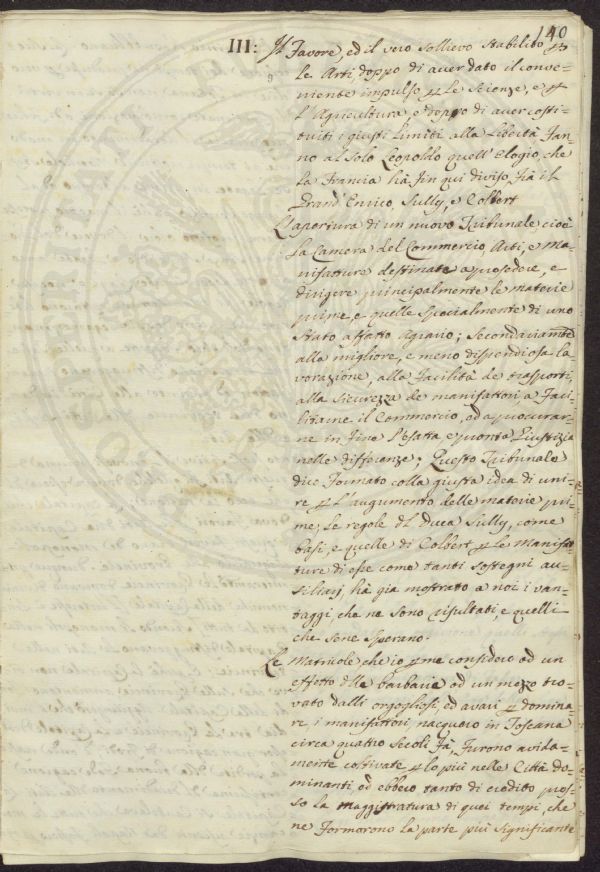 140
III: Il Favore, ed il vero sollievo stabilito p
le Arti, doppo di aver dato il conve-
niente impulso p le Scienze, e p
L'Agricultura, e doppo di aver costi-
tuiti i giusti Limiti alla Libertà fan-
no al solo Leopoldo quell'Elogio, che
la Francia hà fin qui diviso frà il
Grand'Enrico, Sully, e Colbert
L'apertura di un nuovo Tribunale, cioè
la Camera del Commercio, Arti, e Ma-
nifatture destinata a presedere, e
dirigere principalmente le materie
prime, e quelle specialmente di uno
Stato affatto agrario; secondariamte
alla migliore, e meno dispendiosa la-
vorazione, alla facilità de trasporti,
alla sicurezza de manifattori a faci-
litarne il Commercio, ad a procurar-
ne in fine l'esatta e pronta Giustizia
nelle differenze; Questo Tribunale
dico formato colla giusta idea di uni-
re p L'augumento delle materie pri-
me, le regole del Duca Sully, come
basi, e quelle di Colbert p le Manifat-
ture di esse come tanti sostegni au-
siliarj, hà gia mostrato a noi i van-
taggi, che ne sono risultati, e quelli
che sene sperano.
Le Matricole che io p me considero od un
effetto delle barbarie od un mezzo tro-
vato dalli orgogliosi, ed avari p domina-
re i manifattori, nacquero in Toscana
circa quattro Secoli fà, furono avida-
mente coltivate p lo più nelle Città do-
minanti, ed ebbero tanto di credito pres-
so la Maggistratura di quei tempi, che
ne formorono la parte più significante